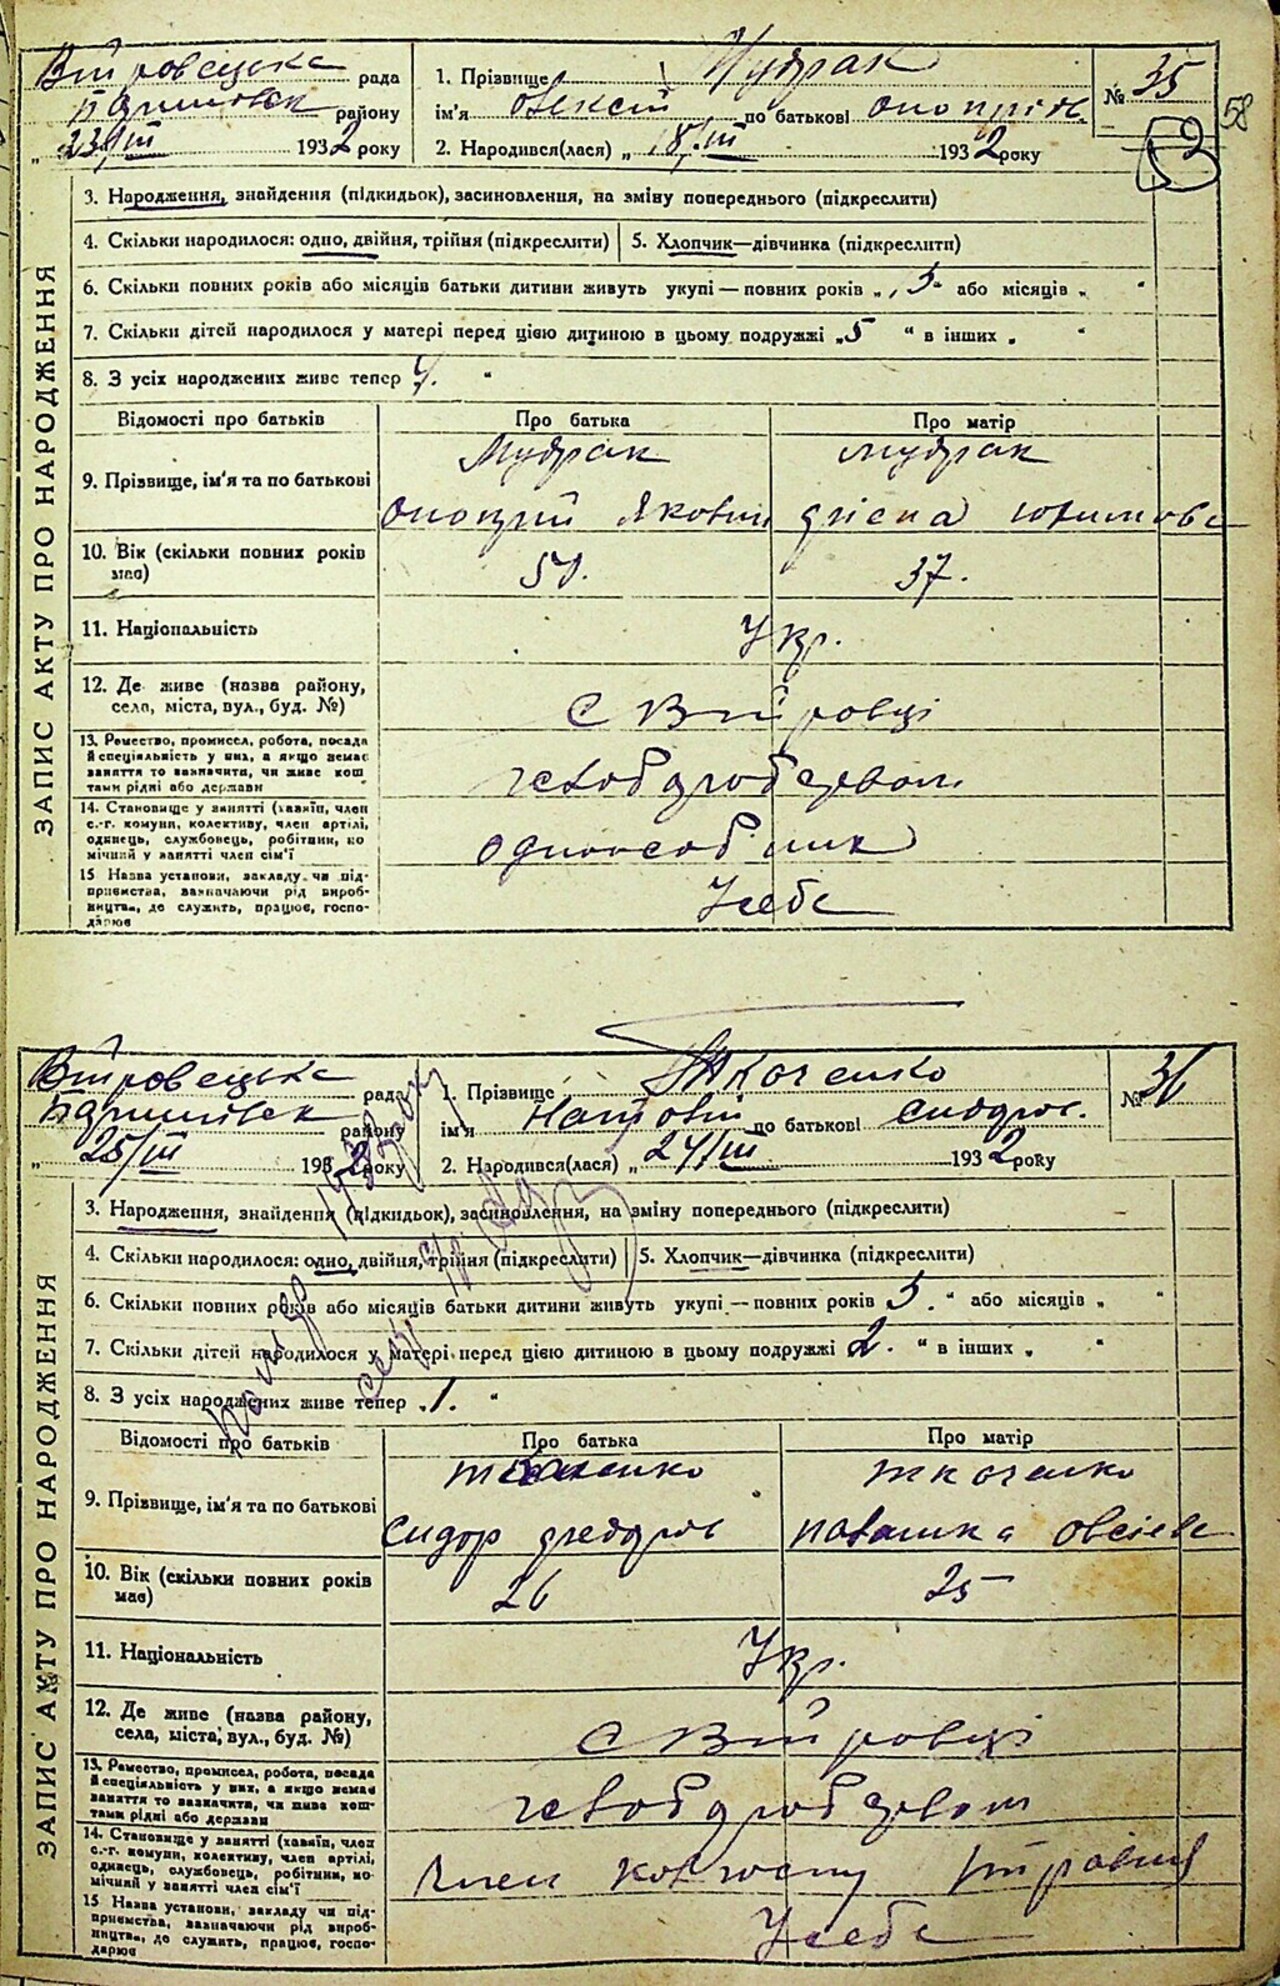 Вітровецька рада
району
23/III 1932 року
1. Прізвище Мудрак
ім'я Олексій по батькові Онопрієв.
2. Народився(лася) „ 18/III 1932 року
№ 35
58
3. Народження, знайдення (підкидьок), засиновлення, на зміну попереднього (підкреслити)
4. Скільки народилося: одно, двійня, трійня (підкреслити) 5. Хлопчик—дівчинка (підкреслити)
6. Скільки повних років або місяців батьки дитини живуть укупі — повних років „ “ або місяців „ “
7. Скільки дітей народилося у матері перед цією дитиною в цьому подружжі „5 “ в інших „ “
8. З усіх народжених живе тепер “
ЗАПИС АКТУ ПРО НАРОДЖЕННЯ
Відомості про батьків Про батька Про матір
9. Прізвище, ім'я та по батькові
Мудрак Мудрак
Онопрій Якович
10. Вік (скільки повних років має)
37.
11. Національність Укр.
12. Де живе (назва району,
села, міста, вул., буд. №)
с Вітровці
13. Ремество, промисел, робота, посада
й спеціяльність у них, а якщо немає
заняття то зазначити, чи живе кош
тами рідні або держави
хлібороборством
14. Становище у занятті (хазяїн, член
с.-г. комуни, колективу, член артілі,
одинець, службовець, робітник, по
мічний у занятті член сім'ї
одноосібник
15 Назва установи, закладу чи під-
приємства, зазначаючи рід вироб-
ництва, де служить, працює, госпо-
дарює
У себе
Вітровецька рада
району
25/III 1932 року
1. Прізвище Ткаченко
ім'я по батькові Сидоров.
2. Народився(лася) „ 24/III 1932 року
№ 36
3. Народження, знайдення (підкидьок), засиновлення, на зміну попереднього (підкреслити)
4. Скільки народилося: одно, двійня, трійня (підкреслити) 5. Хлопчик—дівчинка (підкреслити)
6. Скільки повних років або місяців батьки дитини живуть укупі — повних років 5. “ або місяців „ “
7. Скільки дітей народилося у матері перед цією дитиною в цьому подружжі 2. “ в інших „ “
8. З усіх народжених живе тепер „1. “
ЗАПИС АКТУ ПРО НАРОДЖЕННЯ
Відомості про батьків Про батька Про матір
9. Прізвище, ім'я та по батькові
Ткаченко Ткаченко
Сидор
10. Вік (скільки повних років має)
26 25
11. Національність Укр.
12. Де живе (назва району,
села, міста, вул., буд. №)
с Вітровці
13. Ремество, промисел, робота, посада
й спеціяльність у них, а якщо немає
заняття то зазначити, чи живе кош-
тами рідні або держави
хлібороборством
14. Становище у занятті (хазяїн, член
с.-г. комуни, колективу, член артілі,
одинець, службовець, робітник, по-
мічний у занятті член сім'ї
Член колгоспу
15 Назва установи, закладу чи під-
приємства, зазначаючи рід вироб-
ництва, де служить, працює, госпо-
дарює
У себе